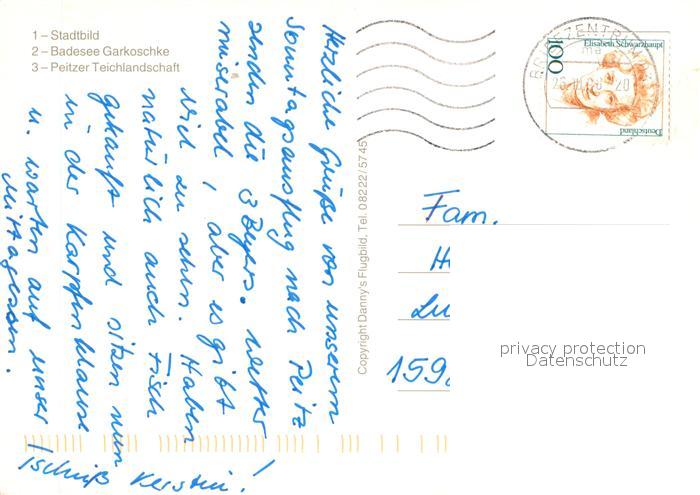 1 – Stadtbild
2 – Badesee Garkoschke
3 – Peitzer Teichlandschaft
Herzliche Grüße von unserem
Sonntagsausflug nach Peitz
senden die 3 Beyers. Wetter
miserabel, aber es gibt
viel zu sehen. Haben
natürlich auch Fisch
gekauft und sitzen nun
in der Karpfenklause
u. warten auf unser
Mittagessen.
Tschüß Kerstin!
Copyright Danny's Flugbild, Tel. 08222/5745
BRIEFZENTRUM
100
Elisabeth Schwarzhaupt
Deutschland
Fam.
H
Lu
159
privacy protection
Datenschutz